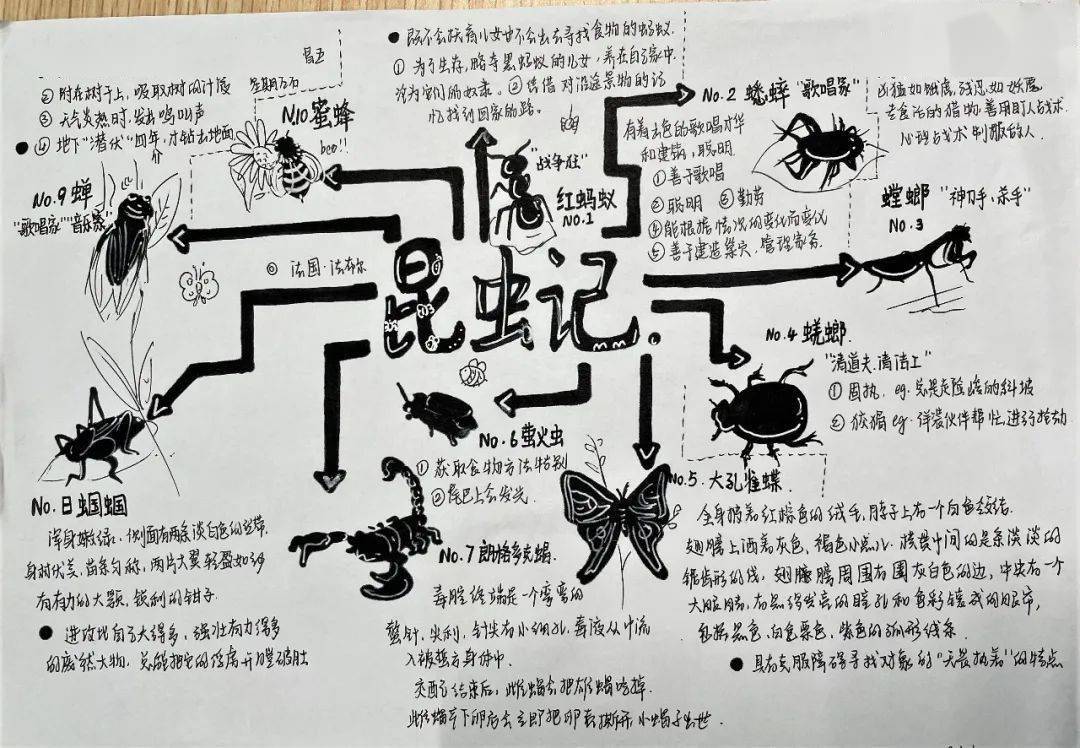 昆虫记
◎ 法国·法布尔
● 既不会抚育儿女也不会出去寻找食物的蚂蚁.
① 为了生存,掠夺黑蚂蚁的儿女,养在自己家中.
沦为它们的奴隶. ② 凭借对沿途景物的记
忆找到回家的路.
"战争狂"
红蚂蚁
NO.1
No.2 蟋蟀 "歌唱家"
有着出色的歌唱才华
和建筑,聪明
① 善于歌唱
② 聪明 ③ 勤劳
④ 能根据情况的变化而变化
⑤ 善于建造巢穴,管理家务.
凶猛如饿虎,残忍如妖魔,
专食活的猎物,善用
心理战术制服敌人.
螳螂 "神刀手,杀手"
NO.3
No.4 蜣螂
"清道夫,清洁工"
① 固执, eg. 总是走险峻的斜坡
② 狡猾 eg. 佯装伙伴帮忙,进行抢劫
No.5. 大孔雀蝶.
全身披着红棕色的绒毛,脖子上有一个白色领结.
翅膀上洒着灰色,褐色小点儿. 横贯中间的是条淡淡的
锯齿形的线,翅膀周围有圈灰白色的边,中央有一个
大眼睛,有黑得发亮的瞳孔和色彩镶成的眼帘,
包括黑色,白色栗色,紫色的弧形线条.
● 具有克服障碍寻找对象的"天赋执着"的特点
No.6 萤火虫
① 获取食物方法特别
② 尾巴上会发光.
No.7 朗格多克蝎
毒腔终端是一个弯弯的
螫针,尖利,针尖有小细孔,毒液从中流
入被螫方身体中.
交配结束后,雌蝎会把雄蝎吃掉.
雌蝎产下卵后会立即把卵衣撕开,小蝎子出世.
No.日蝈蝈
浑身嫩绿,侧面有两条淡白色的丝带.
身材优美,苗条匀称,两片大翼轻盈如纱
有有力的大颚,锐利的钳子.
● 进攻比自己大得多,强壮有力得多
的庞然大物,总能把它的俘虏开膛破肚
No.9 蝉
"歌唱家""音乐家"
② 附在树干上,吸取树的汁液
③ 天气炎热时,发出鸣叫声
● ④ 地下"潜伏"四年,才钻出地面
N.10.蜜蜂
bee!!